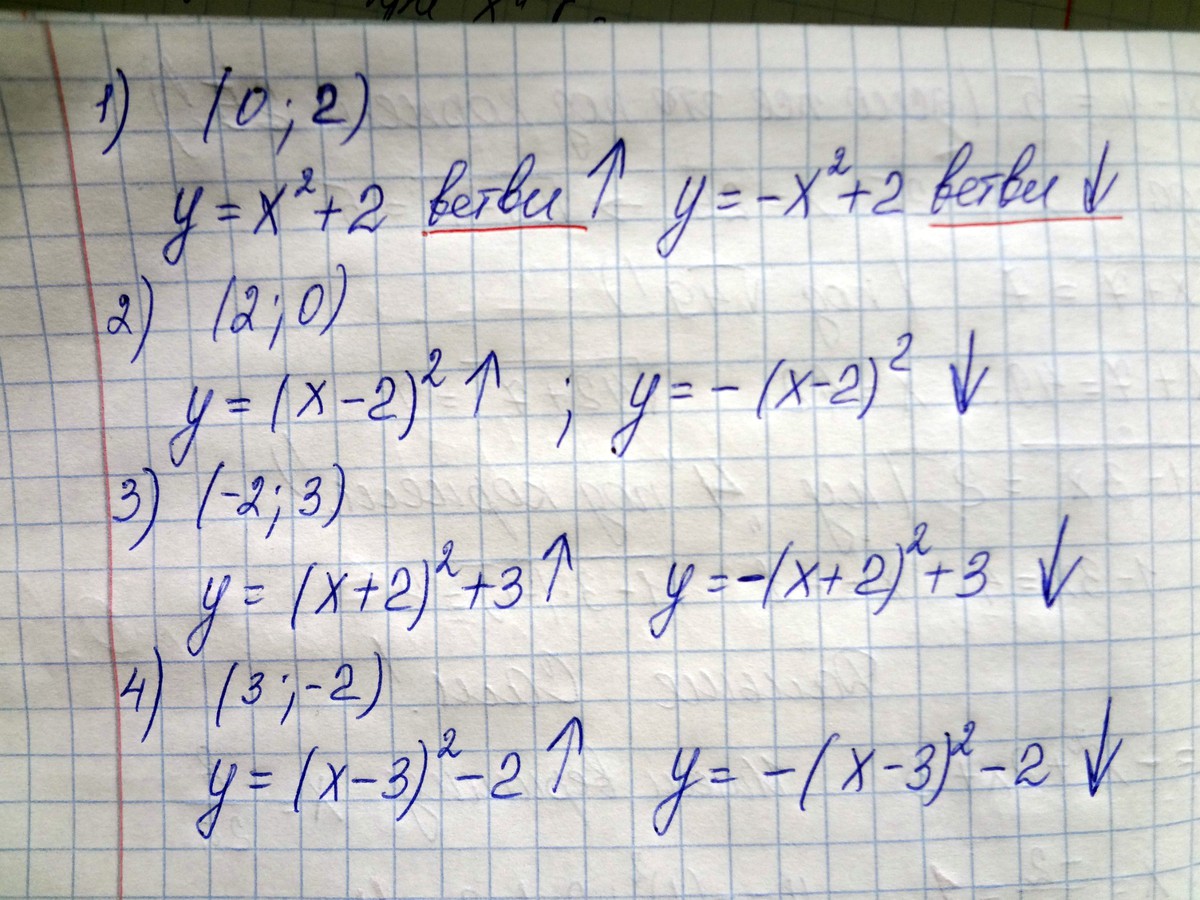 1) (0; 2)
y = x² + 2 ветви ↑ y = -x² + 2 ветви ↓
2) (2; 0)
y = (x - 2)² ↑ ; y = - (x - 2)² ↓
3) (-2; 3)
y = (x + 2)² + 3 ↑ y = -(x + 2)² + 3 ↓
4) (3; -2)
y = (x - 3)² - 2 ↑ y = - (x - 3)² - 2 ↓